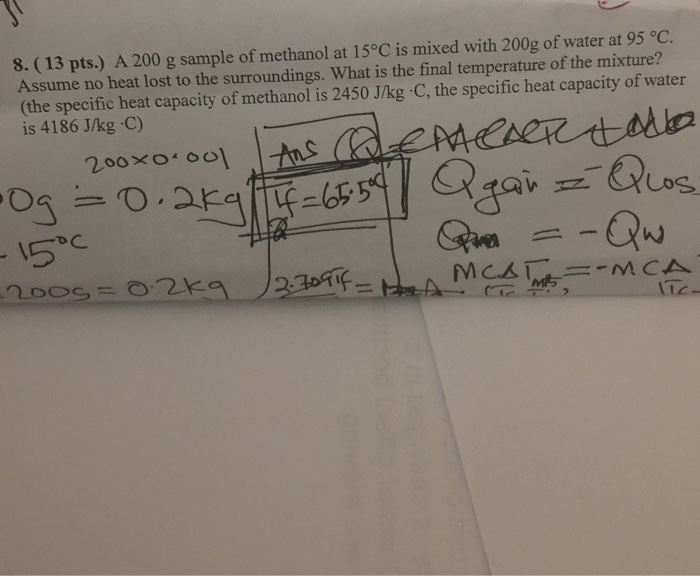 8. ( 13 pts.) A 200 g sample of methanol at 15°C is mixed with 200g of water at 95 °C.
Assume no heat lost to the surroundings. What is the final temperature of the mixture?
(the specific heat capacity of methanol is 2450 J/kg ·C, the specific heat capacity of water
is 4186 J/kg ·C)
200×0.001
Ans
0g = 0.2kg
Tf=65.5°C
Q gain = -Qlos
- 15°C
= - Qw
200g = 0.2kg
MCΔT = -MCΔ